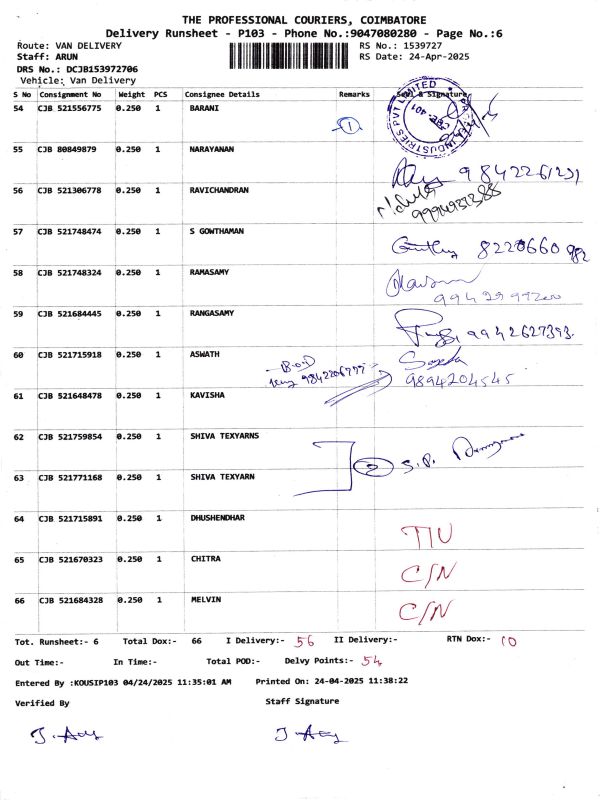 THE PROFESSIONAL COURIERS, COIMBATORE
Delivery Runsheet - P103 - Phone No.:9047080280 - Page No.:6
Route: VAN DELIVERY RS No.: 1539727
Staff: ARUN RS Date: 24-Apr-2025
DRS No.: DCJB153972706
Vehicle: Van Delivery
S No Consignment No Weight PCS Consignee Details Remarks Seal & Signature
54 CJB 521556775 0.250 1 BARANI
1
55 CJB 80849879 0.250 1 NARAYANAN
9842261231
56 CJB 521306778 0.250 1 RAVICHANDRAN
57 CJB 521748474 0.250 1 S GOWTHAMAN
8220660982
58 CJB 521748324 0.250 1 RAMASAMY
59 CJB 521684445 0.250 1 RANGASAMY
9942627393.
60 CJB 521715918 0.250 1 ASWATH
9894204545
61 CJB 521648478 0.250 1 KAVISHA
62 CJB 521759854 0.250 1 SHIVA TEXYARNS
2 S.P.
63 CJB 521771168 0.250 1 SHIVA TEXYARN
64 CJB 521715891 0.250 1 DHUSHENDHAR
65 CJB 521670323 0.250 1 CHITRA
C/N
66 CJB 521684328 0.250 1 MELVIN
C/N
Tot. Runsheet:- 6 Total Dox:- 66 I Delivery:- 56 II Delivery:- RTN Dox:- 10
Out Time:- In Time:- Total POD:- Delvy Points:- 54
Entered By :KOUSIP103 04/24/2025 11:35:01 AM Printed On: 24-04-2025 11:38:22
Verified By Staff Signature